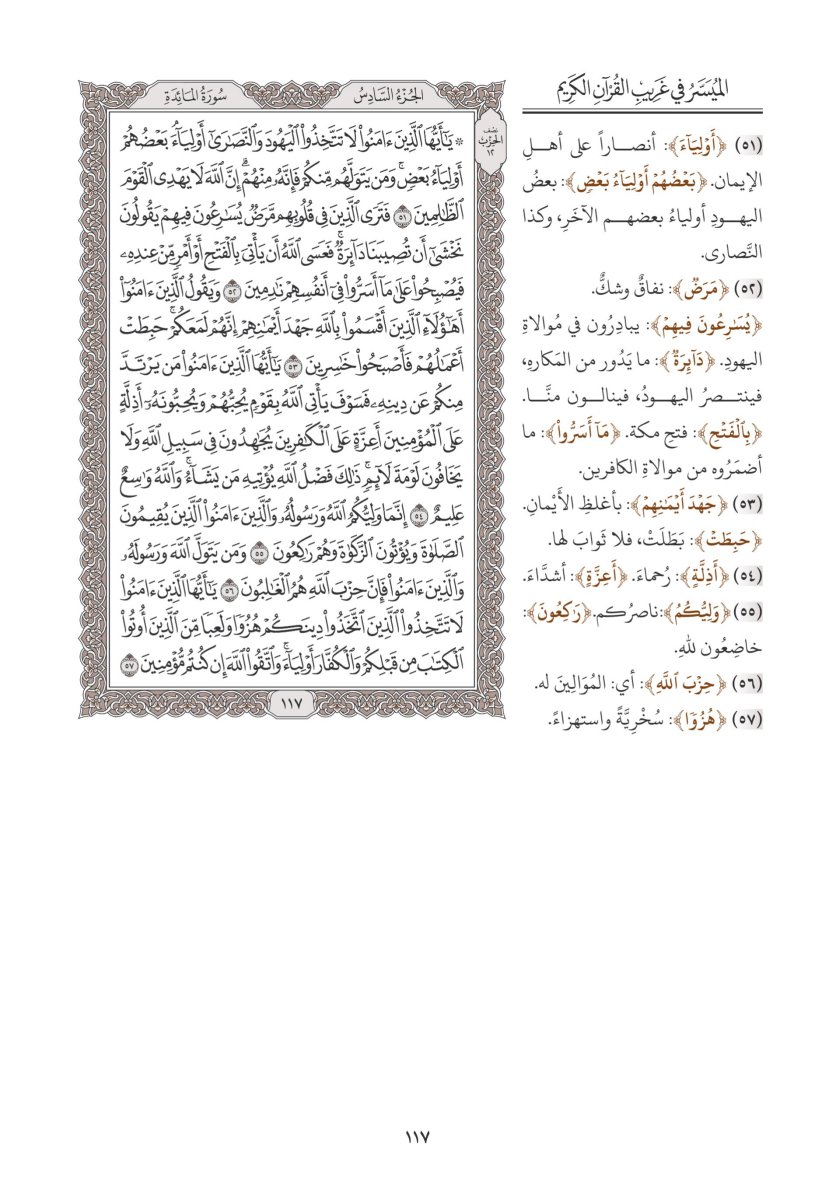 الميسر في غريب القرآن الكريم
(٥١) ﴿أَوْلِيَآءَ﴾: أنصاراً على أهلِ
الإيمان. ﴿بَعْضُهُمْ أَوْلِيَآءُ بَعْضٖ﴾: بعضُ
اليهودِ أولياءُ بعضهم الآخَرِ، وكذا
النَّصارى.
(٥٢) ﴿مَرَضٞ﴾: نفاقٌ وشكٌّ.
﴿يُسَٰرِعُونَ فِيهِمْ﴾: يبادِرُون في مُوالاةِ
اليهودِ. ﴿دَآئِرَةٞ﴾: ما يَدُور من المَكارهِ،
فينتصرُ اليهودُ، فينالون منَّا.
﴿بِٱلْفَتْحِ﴾: فتحِ مكة. ﴿مَآ أَسَرُّوا۟﴾: ما
أضمَرُوه من موالاةِ الكافرين.
(٥٣) ﴿جَهْدَ أَيْمَٰنِهِمْ﴾: بأغلظِ الأَيْمانِ.
﴿حَبِطَتْ﴾: بَطَلَتْ، فلا ثوابَ لها.
(٥٤) ﴿أَذِلَّةٍ﴾: رُحماءَ. ﴿أَعِزَّةٍ﴾: أشدَّاءَ.
(٥٥) ﴿وَلِيُّكُمُ﴾: ناصرُكم. ﴿رَٰكِعُونَ﴾:
خاضِعُون للهِ.
(٥٦) ﴿حِزْبَ ٱللَّهِ﴾: أي: المُوَالِينَ له.
(٥٧) ﴿هُزُوٗا﴾: سُخْرِيَّةً واستهزاءً.
الجُزْءُ السَّادِسُ
سُورَةُ المَائِدَةِ
نصف
الحزب
١٢
۞ يَٰٓأَيُّهَا ٱلَّذِينَ ءَامَنُوا۟ لَا تَتَّخِذُوا۟ ٱلْيَهُودَ وَٱلنَّصَٰرَىٰٓ أَوْلِيَآءَۘ بَعْضُهُمْ
أَوْلِيَآءُ بَعْضٖۚ وَمَن يَتَوَلَّهُم مِّنكُمْ فَإِنَّهُۥ مِنْهُمْۗ إِنَّ ٱللَّهَ لَا يَهْدِى ٱلْقَوْمَ
ٱلظَّٰلِمِينَ ٥١ فَتَرَى ٱلَّذِينَ فِى قُلُوبِهِم مَّرَضٞ يُسَٰرِعُونَ فِيهِمْ يَقُولُونَ
نَخْشَىٰٓ أَن تُصِيبَنَا دَآئِرَةٞۚ فَعَسَى ٱللَّهُ أَن يَأْتِىَ بِٱلْفَتْحِ أَوْ أَمْرٖ مِّنْ عِندِهِۦ
فَيُصْبِحُوا۟ عَلَىٰ مَآ أَسَرُّوا۟ فِىٓ أَنفُسِهِمْ نَٰدِمِينَ ٥٢ وَيَقُولُ ٱلَّذِينَ ءَامَنُوٓا۟
أَهَٰٓؤُلَآءِ ٱلَّذِينَ أَقْسَمُوا۟ بِٱللَّهِ جَهْدَ أَيْمَٰنِهِمْ إِنَّهُمْ لَمَعَكُمْۚ حَبِطَتْ
أَعْمَٰلُهُمْ فَأَصْبَحُوا۟ خَٰسِرِينَ ٥٣ يَٰٓأَيُّهَا ٱلَّذِينَ ءَامَنُوا۟ مَن يَرْتَدَّ
مِنكُمْ عَن دِينِهِۦ فَسَوْفَ يَأْتِى ٱللَّهُ بِقَوْمٖ يُحِبُّهُمْ وَيُحِبُّونَهُۥٓ أَذِلَّةٍ
عَلَى ٱلْمُؤْمِنِينَ أَعِزَّةٍ عَلَى ٱلْكَٰفِرِينَ يُجَٰهِدُونَ فِى سَبِيلِ ٱللَّهِ وَلَا
يَخَافُونَ لَوْمَةَ لَآئِمٖۚ ذَٰلِكَ فَضْلُ ٱللَّهِ يُؤْتِيهِ مَن يَشَآءُۚ وَٱللَّهُ وَٰسِعٌ
عَلِيمٌ ٥٤ إِنَّمَا وَلِيُّكُمُ ٱللَّهُ وَرَسُولُهُۥ وَٱلَّذِينَ ءَامَنُوا۟ ٱلَّذِينَ يُقِيمُونَ
ٱلصَّلَوٰةَ وَيُؤْتُونَ ٱلزَّكَوٰةَ وَهُمْ رَٰكِعُونَ ٥٥ وَمَن يَتَوَلَّ ٱللَّهَ وَرَسُولَهُۥ
وَٱلَّذِينَ ءَامَنُوا۟ فَإِنَّ حِزْبَ ٱللَّهِ هُمُ ٱلْغَٰلِبُونَ ٥٦ يَٰٓأَيُّهَا ٱلَّذِينَ ءَامَنُوا۟
لَا تَتَّخِذُوا۟ ٱلَّذِينَ ٱتَّخَذُوا۟ دِينَكُمْ هُزُوٗا وَلَعِبٗا مِّنَ ٱلَّذِينَ أُوتُوا۟
ٱلْكِتَٰبَ مِن قَبْلِكُمْ وَٱلْكُفَّارَ أَوْلِيَآءَۚ وَٱتَّقُوا۟ ٱللَّهَ إِن كُنتُم مُّؤْمِنِينَ ٥٧
١١٧
١١٧